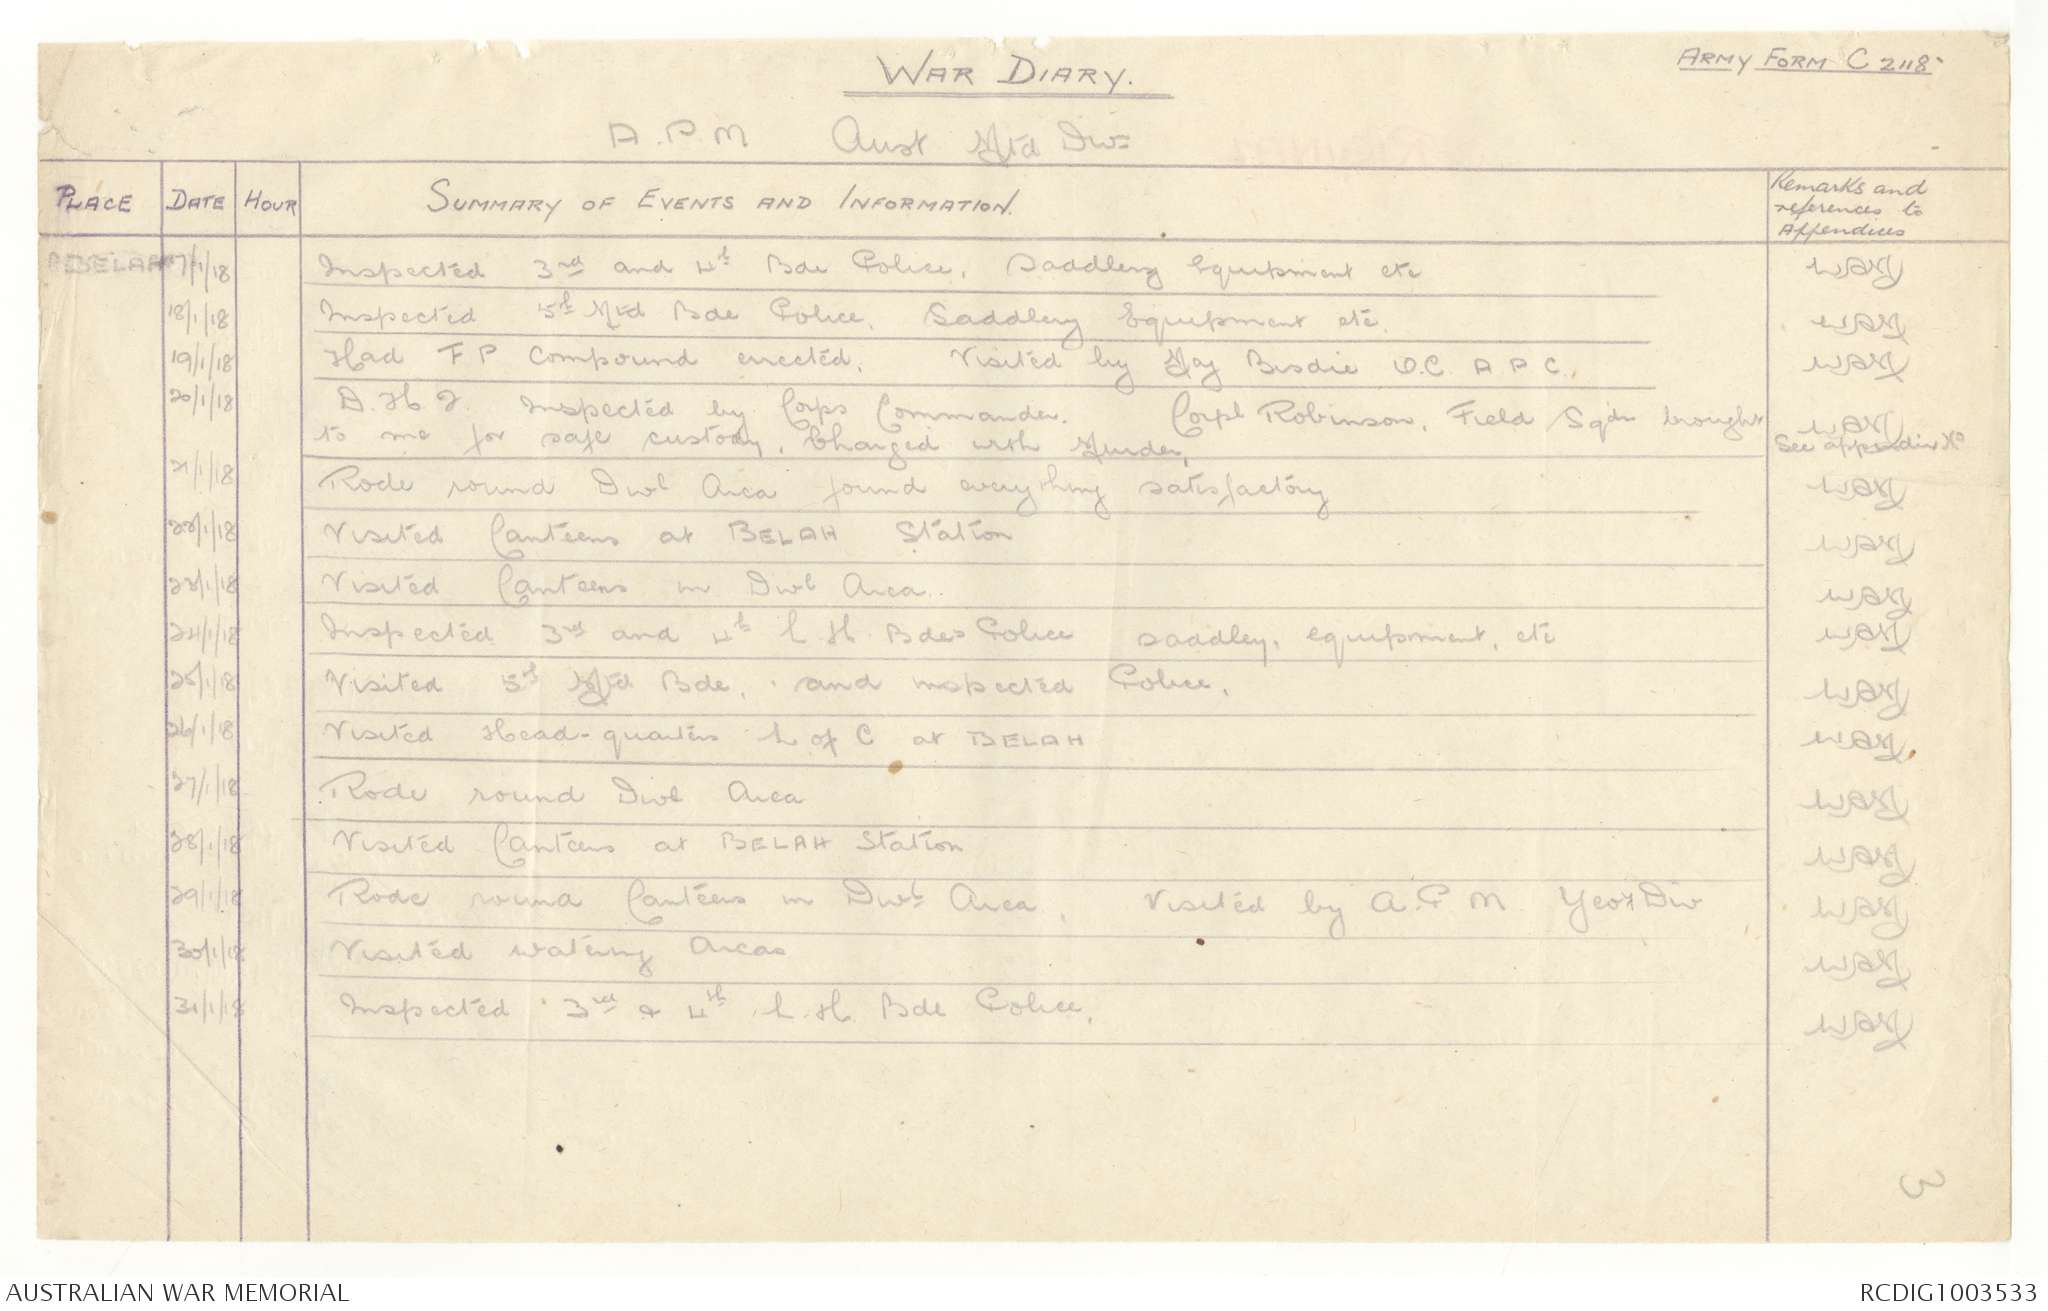 WAR DIARY.
ARMY FORM C 2118
A.P.M Aust Mtd Divn
PLACE DATE HOUR SUMMARY OF EVENTS AND INFORMATION. Remarks and references to Appendices
BELAH 17/1/18 Inspected 3rd and 4th Bde Police, Saddlery Equipment etc
18/1/18 Inspected 5th Mtd Bde Police, Saddlery Equipment etc.
19/1/18 Had F P Compound errected. Visited by Maj Bisdie O.C. A P C.
20/1/18 D.H.Q. Inspected by Corps Commander. Corpl Robinson, Field Sqdn brought
to me for safe custody, Charged with Murder, See appendix No
21/1/18 Rode round Divl Area found everything satisfactory
22/1/18 Visited Canteens at BELAH Station
23/1/18 Visited Canteens in Divl Area.
24/1/18 Inspected 3rd and 4th L.H. Bdes Police saddley, equipment, etc
25/1/18 Visited 5th Mtd Bde, and inspected Police,
26/1/18 Visited Head-quarters L of C at BELAH
27/1/18 Rode round Divl Area
28/1/18 Visited Canteens at BELAH Station
29/1/18 Rode round Canteens in Divl Area, Visited by A.P M Yeox Div
30/1/18 Visited watering Areas
31/1/18 Inspected 3rd & 4th L.H. Bde Police,
3
AUSTRALIAN WAR MEMORIAL
RCDIG1003533